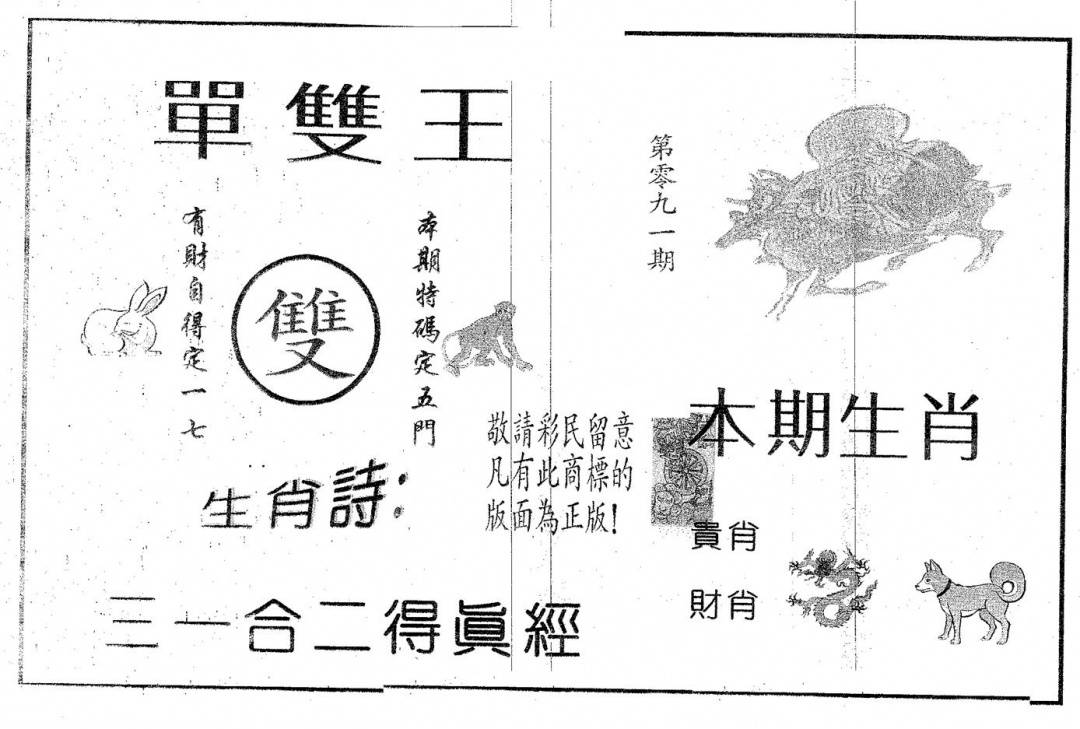 單雙王
第零九一期
本期特碼定五門
雙
有財自得定一七
敬請彩民留意
凡有此商標的
版面為正版!
本期生肖
貴肖
財肖
生肖詩:
三一合二得眞經